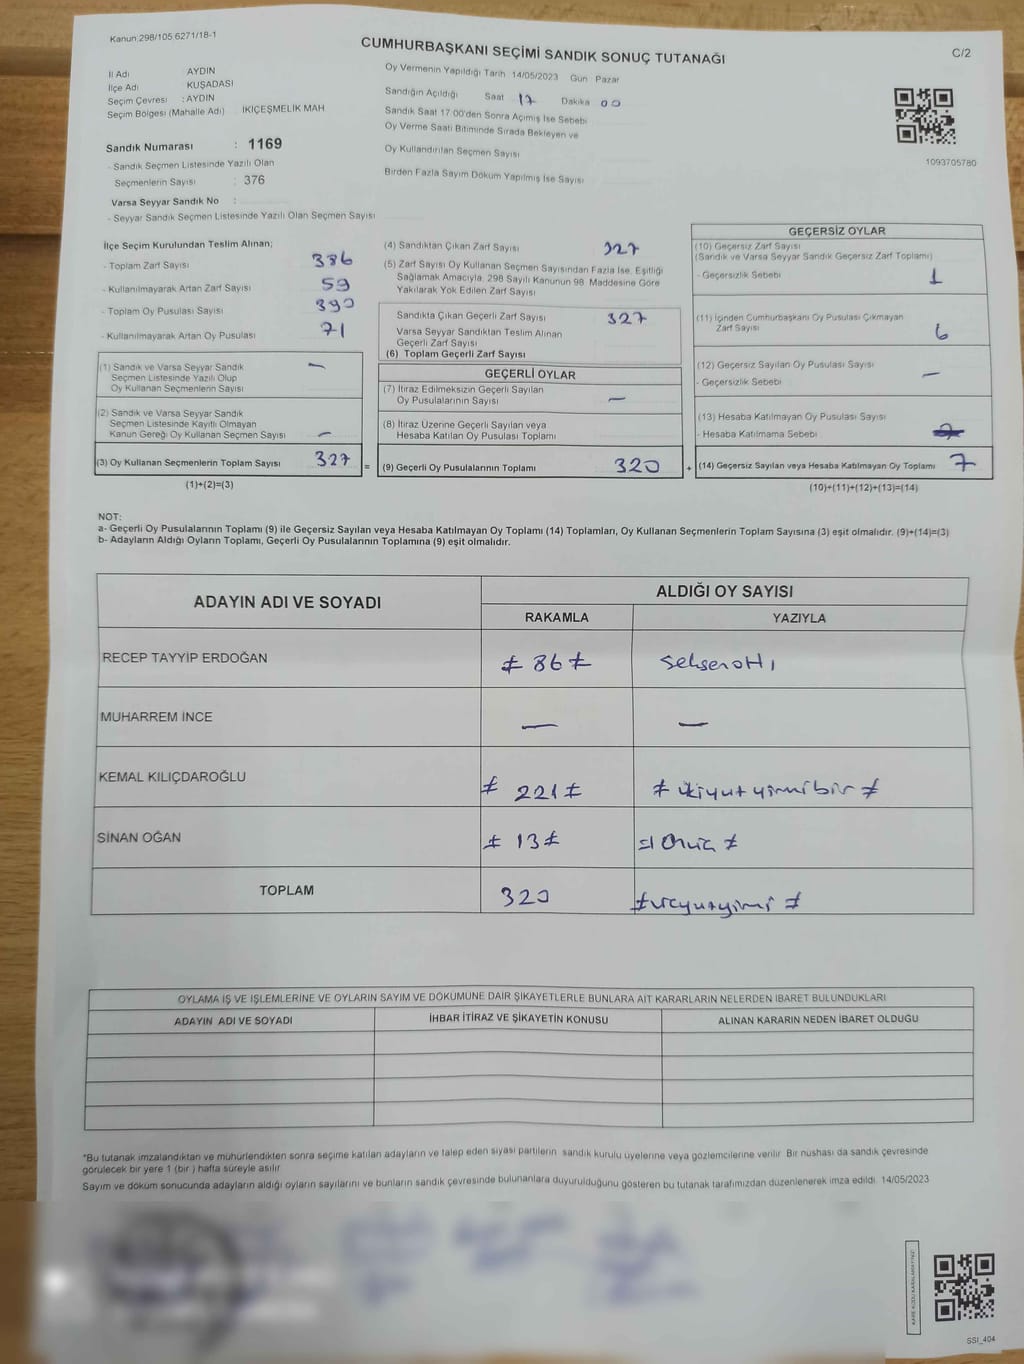 Kanun:298/105 6271/18-1
CUMHURBAŞKANI SEÇİMİ SANDIK SONUÇ TUTANAĞI
C/2
İl Adı AYDIN
İlçe Adı KUŞADASI
Seçim Çevresi : AYDIN
Seçim Bölgesi (Mahalle Adı) İKİÇEŞMELİK MAH
Oy Vermenin Yapıldığı Tarih 14/05/2023 Gün Pazar
Sandığın Açıldığı Saat 17 Dakika 00
Sandık Saat 17:00'den Sonra Açımış İse Sebebi
Oy Verme Saati Bitiminde Sırada Bekleyen ve
Oy Kullandırılan Seçmen Sayısı
Birden Fazla Sayım Döküm Yapılmış İse Sayısı
1093705780
Sandık Numarası : 1169
- Sandık Seçmen Listesinde Yazılı Olan
Seçmenlerin Sayısı : 376
Varsa Seyyar Sandık No :
- Seyyar Sandık Seçmen Listesinde Yazılı Olan Seçmen Sayısı
İlçe Seçim Kurulundan Teslim Alınan;
- Toplam Zarf Sayısı 386
- Kullanılmayarak Artan Zarf Sayısı 59
- Toplam Oy Pusulası Sayısı 390
- Kullanılmayarak Artan Oy Pusulası 71
(1) Sandık ve Varsa Seyyar Sandık —
Seçmen Listesinde Yazılı Olup
Oy Kullanan Seçmenlerin Sayısı
(2) Sandık ve Varsa Seyyar Sandık
Seçmen Listesinde Kayıtlı Olmayan
Kanun Gereği Oy Kullanan Seçmen Sayısı —
(3) Oy Kullanan Seçmenlerin Toplam Sayısı 327 =
(1)+(2)=(3)
(4) Sandıktan Çıkan Zarf Sayısı 327
(5) Zarf Sayısı Oy Kullanan Seçmen Sayısından Fazla İse, Eşitliği
Sağlamak Amacıyla, 298 Sayılı Kanunun 98. Maddesine Göre
Yakılarak Yok Edilen Zarf Sayısı
Sandıkta Çıkan Geçerli Zarf Sayısı 327
Varsa Seyyar Sandıktan Teslim Alınan
Geçerli Zarf Sayısı
(6) Toplam Geçerli Zarf Sayısı
GEÇERLİ OYLAR
(7) İtiraz Edilmeksizin Geçerli Sayılan
Oy Pusulalarının Sayısı —
(8) İtiraz Üzerine Geçerli Sayılan veya
Hesaba Katılan Oy Pusulası Toplamı
(9) Geçerli Oy Pusulalarının Toplamı 320 +
GEÇERSİZ OYLAR
(10) Geçersiz Zarf Sayısı
(Sandık ve Varsa Seyyar Sandık Geçersiz Zarf Toplamı)
- Geçersizlik Sebebi 1
(11) İçinden Cumhurbaşkanı Oy Pusulası Çıkmayan
Zarf Sayısı 6
(12) Geçersiz Sayılan Oy Pusulası Sayısı
- Geçersizlik Sebebi —
(13) Hesaba Katılmayan Oy Pusulası Sayısı
- Hesaba Katılmama Sebebi
(14) Geçersiz Sayılan veya Hesaba Katılmayan Oy Toplamı 7
(10)+(11)+(12)+(13)=(14)
NOT:
a- Geçerli Oy Pusulalarının Toplamı (9) ile Geçersiz Sayılan veya Hesaba Katılmayan Oy Toplamı (14) Toplamları, Oy Kullanan Seçmenlerin Toplam Sayısına (3) eşit olmalıdır. (9)+(14)=(3)
b- Adayların Aldığı Oyların Toplamı, Geçerli Oy Pusulalarının Toplamına (9) eşit olmalıdır.
ADAYIN ADI VE SOYADI
ALDIĞI OY SAYISI
RAKAMLA YAZIYLA
RECEP TAYYİP ERDOĞAN ≠ 86 ≠ Seksenaltı
MUHARREM İNCE — —
KEMAL KILIÇDAROĞLU ≠ 221 ≠ ≠ ikiyüzyirmibir ≠
SİNAN OĞAN ≠ 13 ≠ ≠ Onüç ≠
TOPLAM 320 ≠ üçyüzyirmi ≠
OYLAMA İŞ VE İŞLEMLERİNE VE OYLARIN SAYIM VE DÖKÜMÜNE DAİR ŞİKAYETLERLE BUNLARA AİT KARARLARIN NELERDEN İBARET BULUNDUKLARI
ADAYIN ADI VE SOYADI İHBAR İTİRAZ VE ŞİKAYETİN KONUSU ALINAN KARARIN NEDEN İBARET OLDUĞU
*Bu tutanak imzalandıktan ve mühürlendikten sonra seçime katılan adayların ve talep eden siyasi partilerin sandık kurulu üyelerine veya gözlemcilerine verilir. Bir nüshası da sandık çevresinde
görülecek bir yere 1 (bir ) hafta süreyle asılır
Sayım ve döküm sonucunda adayların aldığı oyların sayılarını ve bunların sandık çevresinde bulunanlara duyurulduğunu gösteren bu tutanak tarafımızdan düzenlenerek imza edildi. 14/05/2023
SSI_404